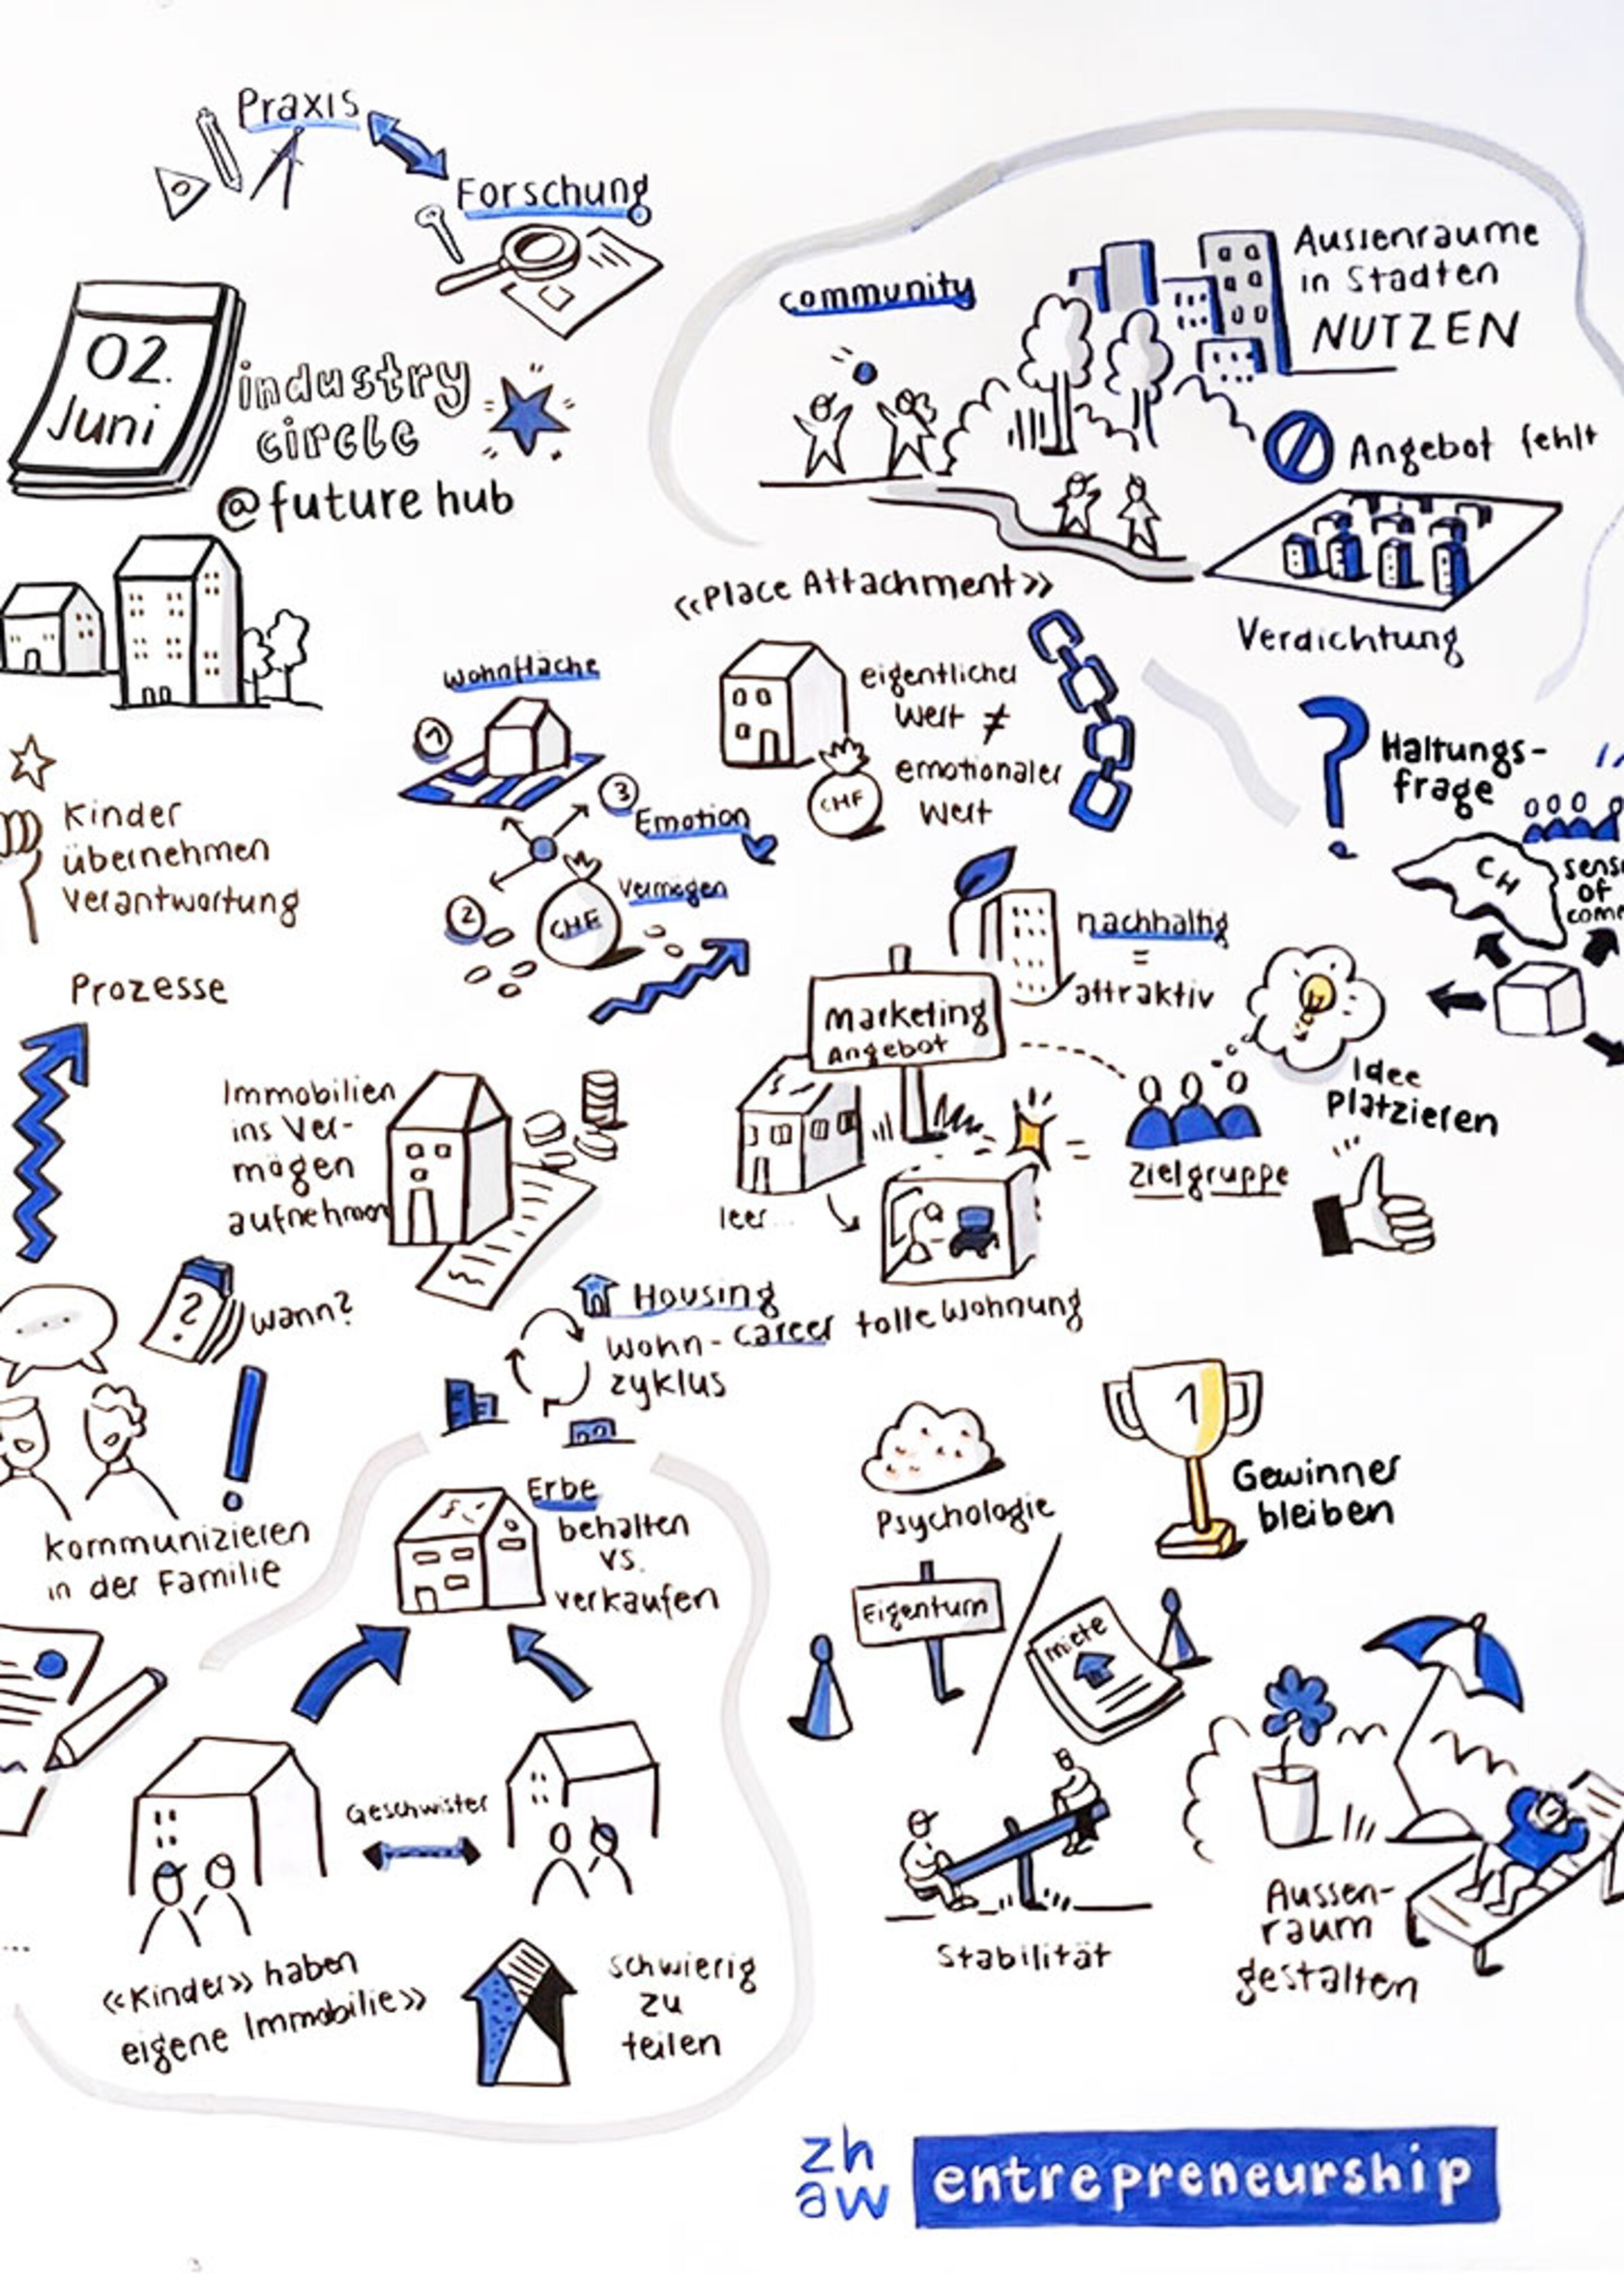 Praxis
Forschung
02.
Juni
industry
circle
@future hub
community
Aussenräume
in Städten
NUTZEN
Angebot fehlt
Verdichtung
«Place Attachment»
eigentlicher
Wert ≠
emotionaler
Wert
CHF
Wohnfläche
1
3
Emotion
2
Vermögen
CHF
Haltungs-
frage
CH
of
Kinder
übernehmen
Verantwortung
Prozesse
nachhaltig
=
attraktiv
Marketing
Angebot
Idee
Platzieren
=
Zielgruppe
leer...
tolle Wohnung
Immobilien
ins Ver-
mögen
aufnehmen
?
wann?
...
Housing
career
Wohn-
zyklus
kommunizieren
in der Familie
Erbe
behalten
vs.
verkaufen
Geschwister
«Kinder» haben
eigene Immobilie»
schwierig
zu
teilen
Psychologie
1
Gewinner
bleiben
Eigentum
Miete
Stabilität
Aussen-
raum
gestalten
zh
aw
entrepreneurship